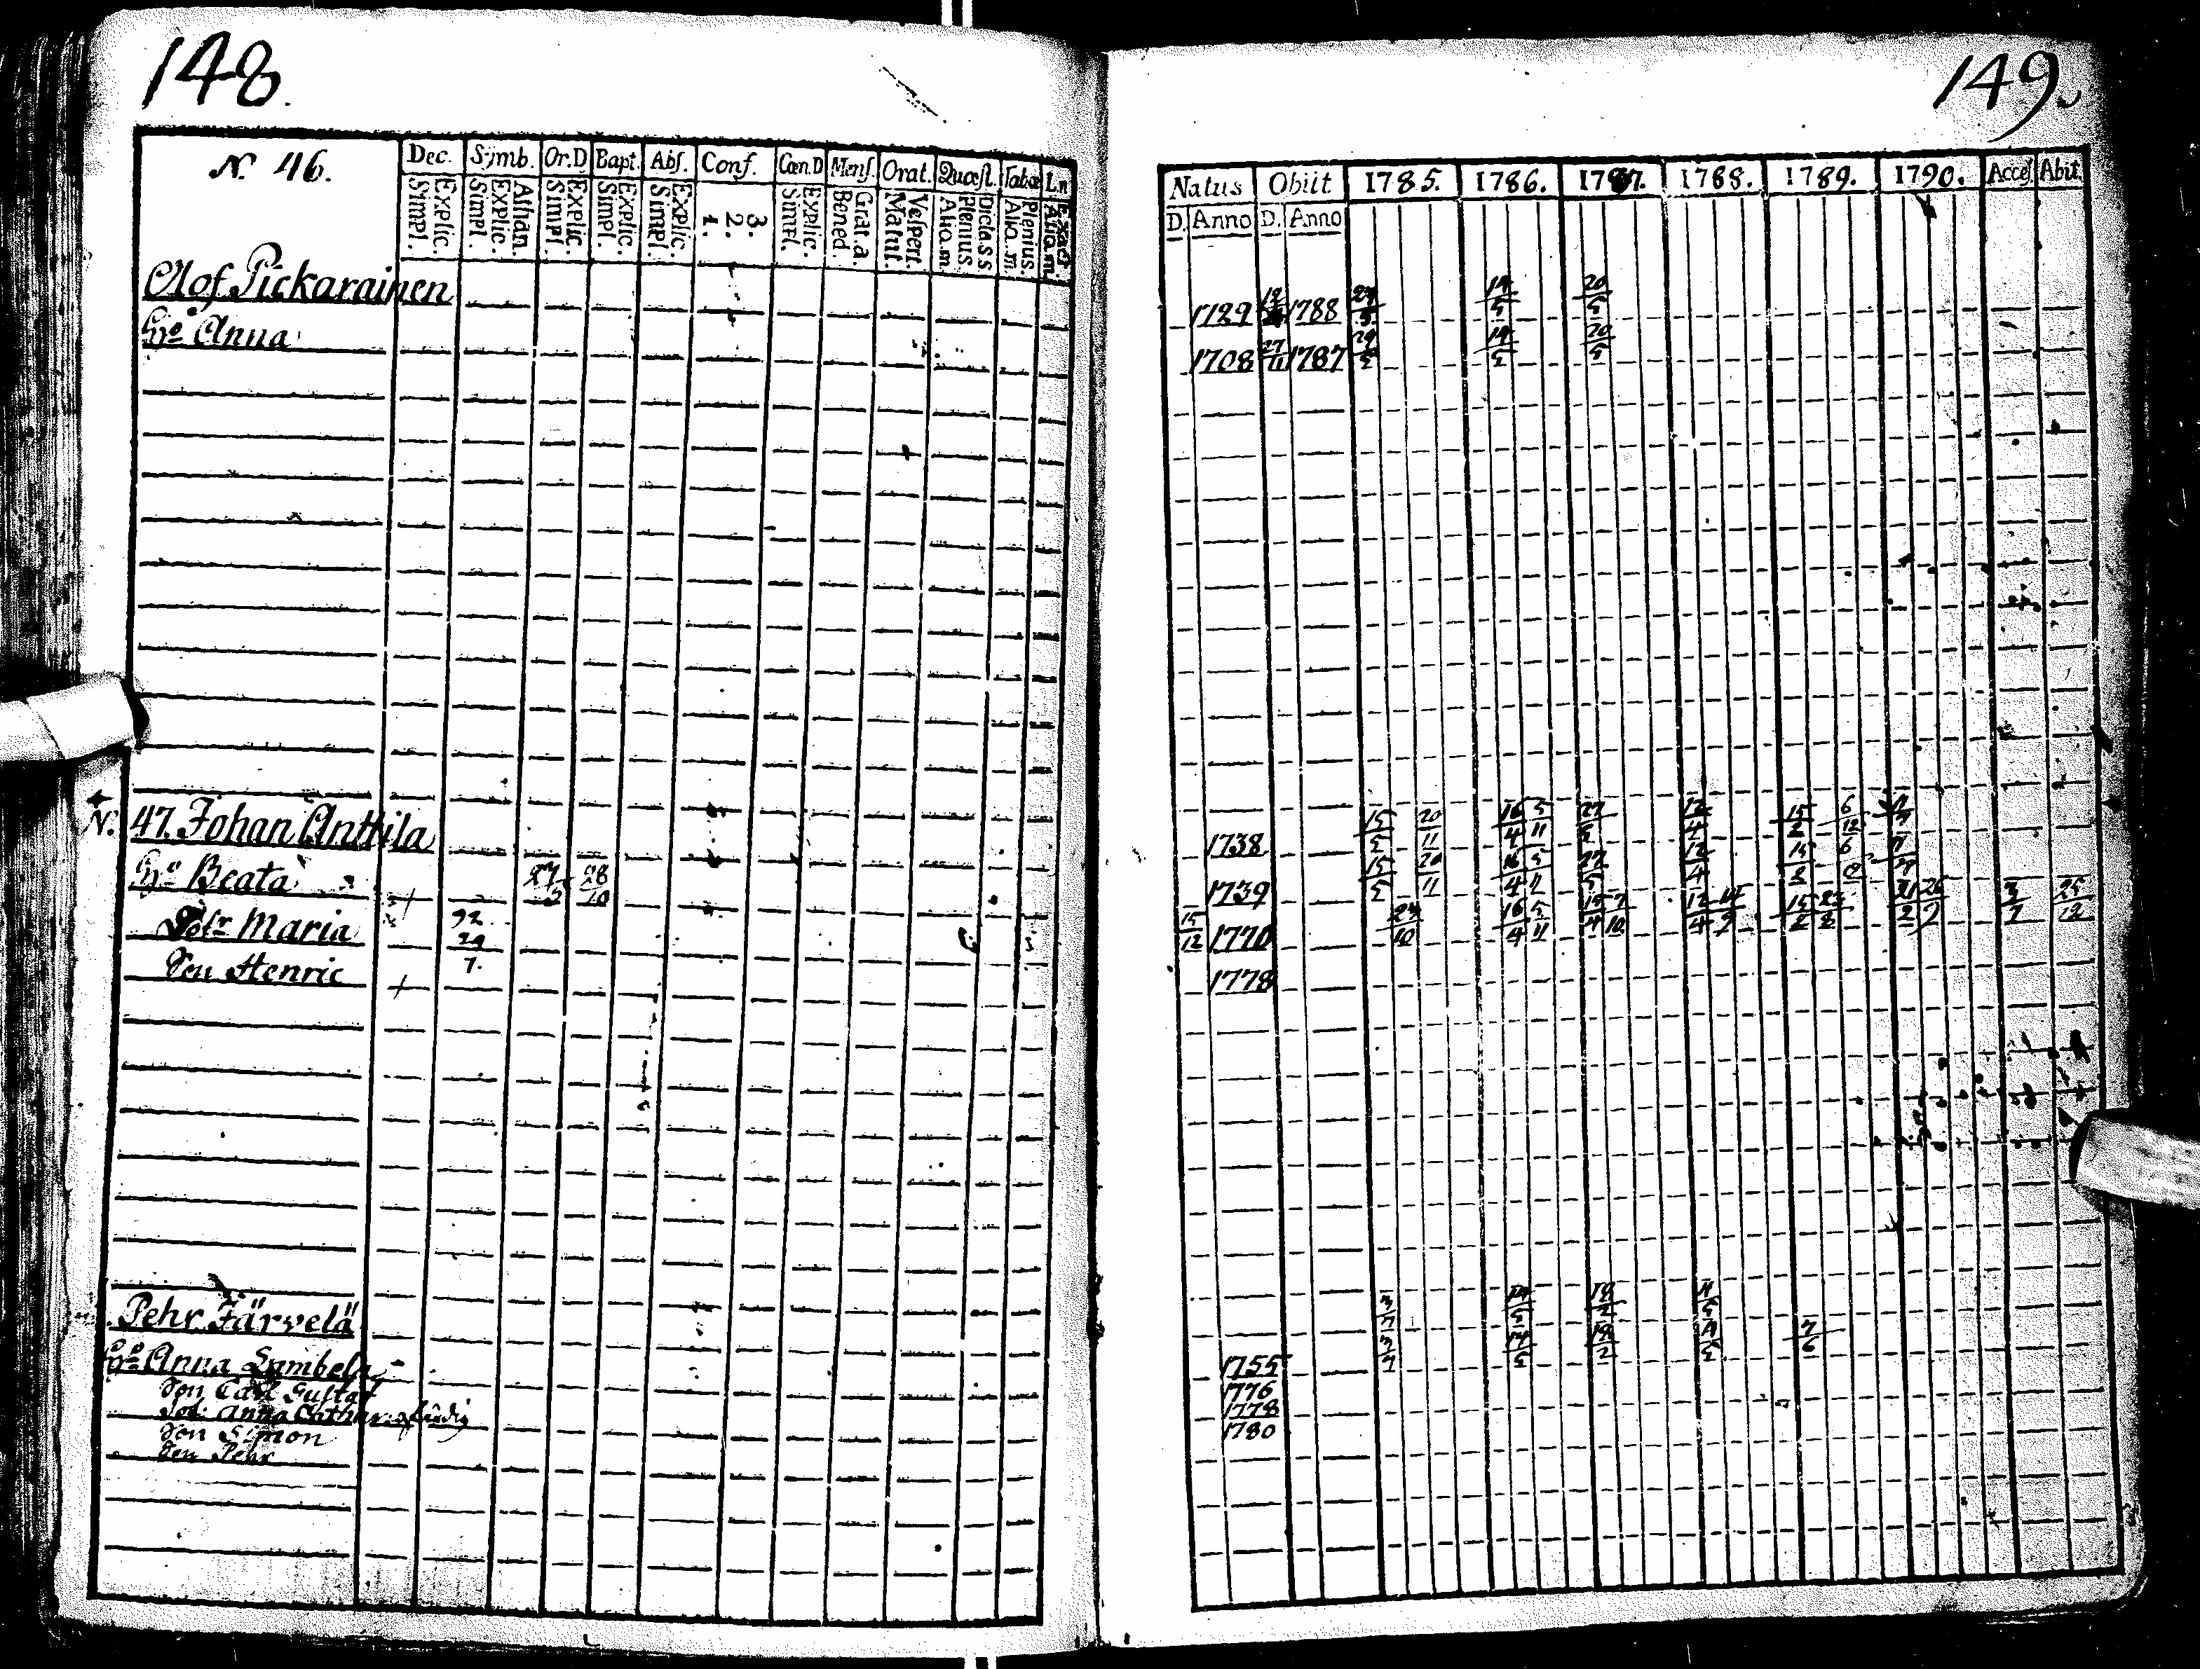 148.
N. 46.
Dec. Symb. Or.D Bapt. Abs. Conf. Cœn.D Mens. Orat. Quæst. Tabæ
Explic. Simpl. Athan. Explic. Simpl. Explic. Simpl. Explic. Simpl. Explic. Simpl. 3. 2. 1. Explic. Simpl. Grat.a. Bened. Vespert. Matut. Dicta SS Plenius Aliq.m. Plenius. Aliq.m Exact Aliq.m.
Olof Pickarainen
Ho Anna
N. 47. Johan Anttila
Ho Beata 27/2 28/10
Dotr Maria 92 29 7.
Son Henric
Pehr Järvelä
Ho Anna
Son Carl Gustaf
Dot: Anna Cathar:
Son Simon
Son Pehr
149.
Natus Obiit 1785. 1786. 1787. 1788. 1789. 1790. Acces. Abit.
D. Anno D. Anno
1729 1788 19/5 20/5
1708 27/11 1787 29/5 19/5 20/5
1738 15/5 20/11 16/4 5/11 27/5 12/4 15/2 6/12
1739 15/5 20/11 16/4 5/11 27/5 12/4 15/2 6
15/12 1770 23/10 16/4 5/11 15/4 7/10 12/4 15/2 23/8 21/2 26/7 25/12
1778
3/7 14/5 18/2 11/5
1755 3/7 14/5 18/2 11/5 7/6
1776
1778
1780